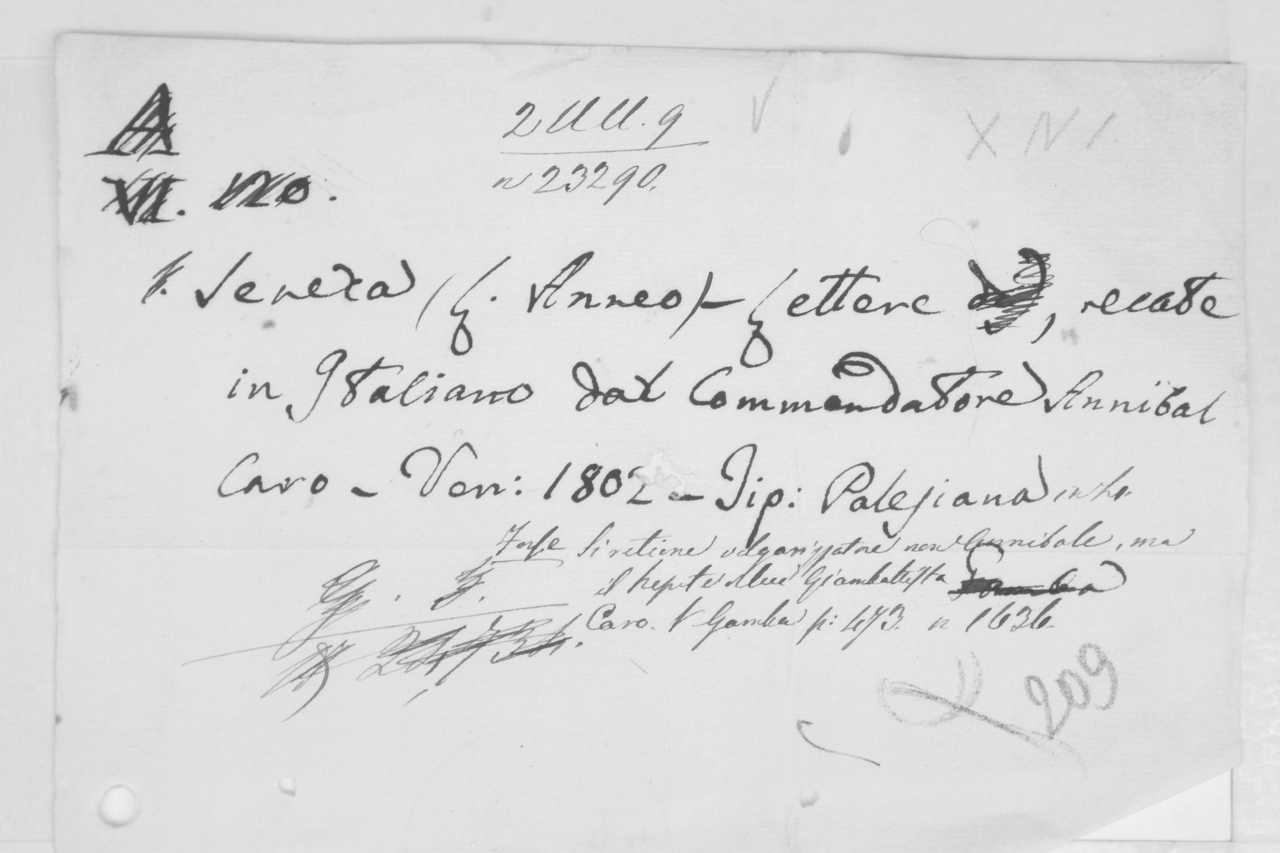 A
2 UU. 9
n 23290.
XNI.
VII. 120.
Seneca (L. Anneo) - Lettere, recate
in Italiano dal Commendatore Annibal
Caro - Ven: 1802 - Tip: Palesiana in
Forse Si ritiene volgarizzatore non Annibale, ma
il Giambattista
Caro. V Gamba p: 473. n 1636.
209